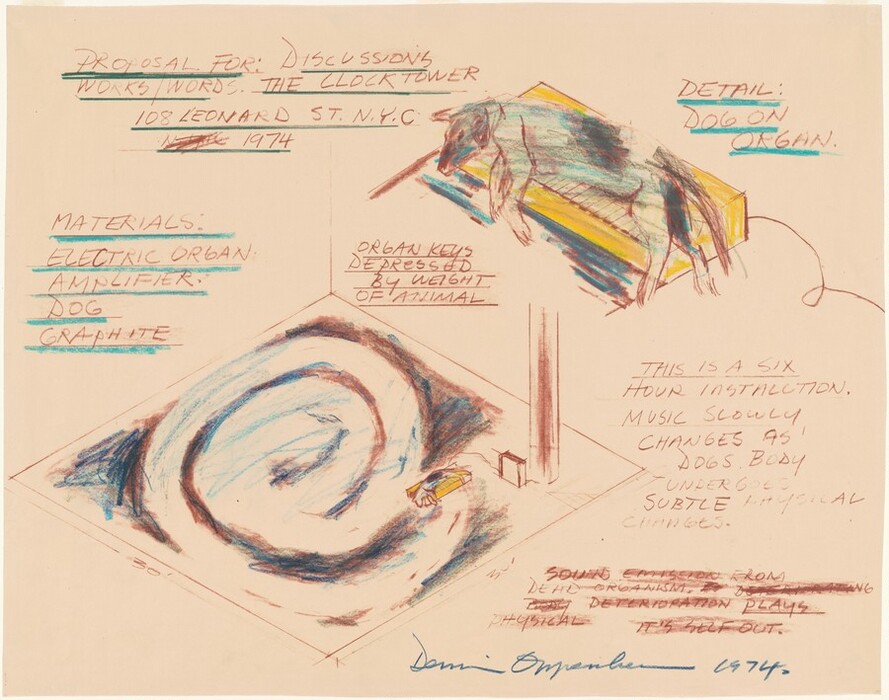 PROPOSAL FOR: DISCUSSIONS
WORKS/WORDS. THE CLOCKTOWER
108 LEONARD ST. N.Y.C
1974
DETAIL:
DOG ON
ORGAN.
MATERIALS:
ELECTRIC ORGAN:
AMPLIFIER:
DOG
GRAPHITE
ORGAN KEYS
DEPRESSED
BY WEIGHT
OF ANIMAL
THIS IS A SIX
HOUR INSTALCTION.
MUSIC SLOWLY
CHANGES AS
DOGS BODY
UNDERGOES
SUBTLE PHYSICAL
CHANGES.
30'
SOUND EMISSION FROM
DEAD ORGANISM. DETERIORATING
BODY DETERIORATION PLAYS
PHYSICAL IT'S SELF OUT.
Dennis Oppenheim 1974.